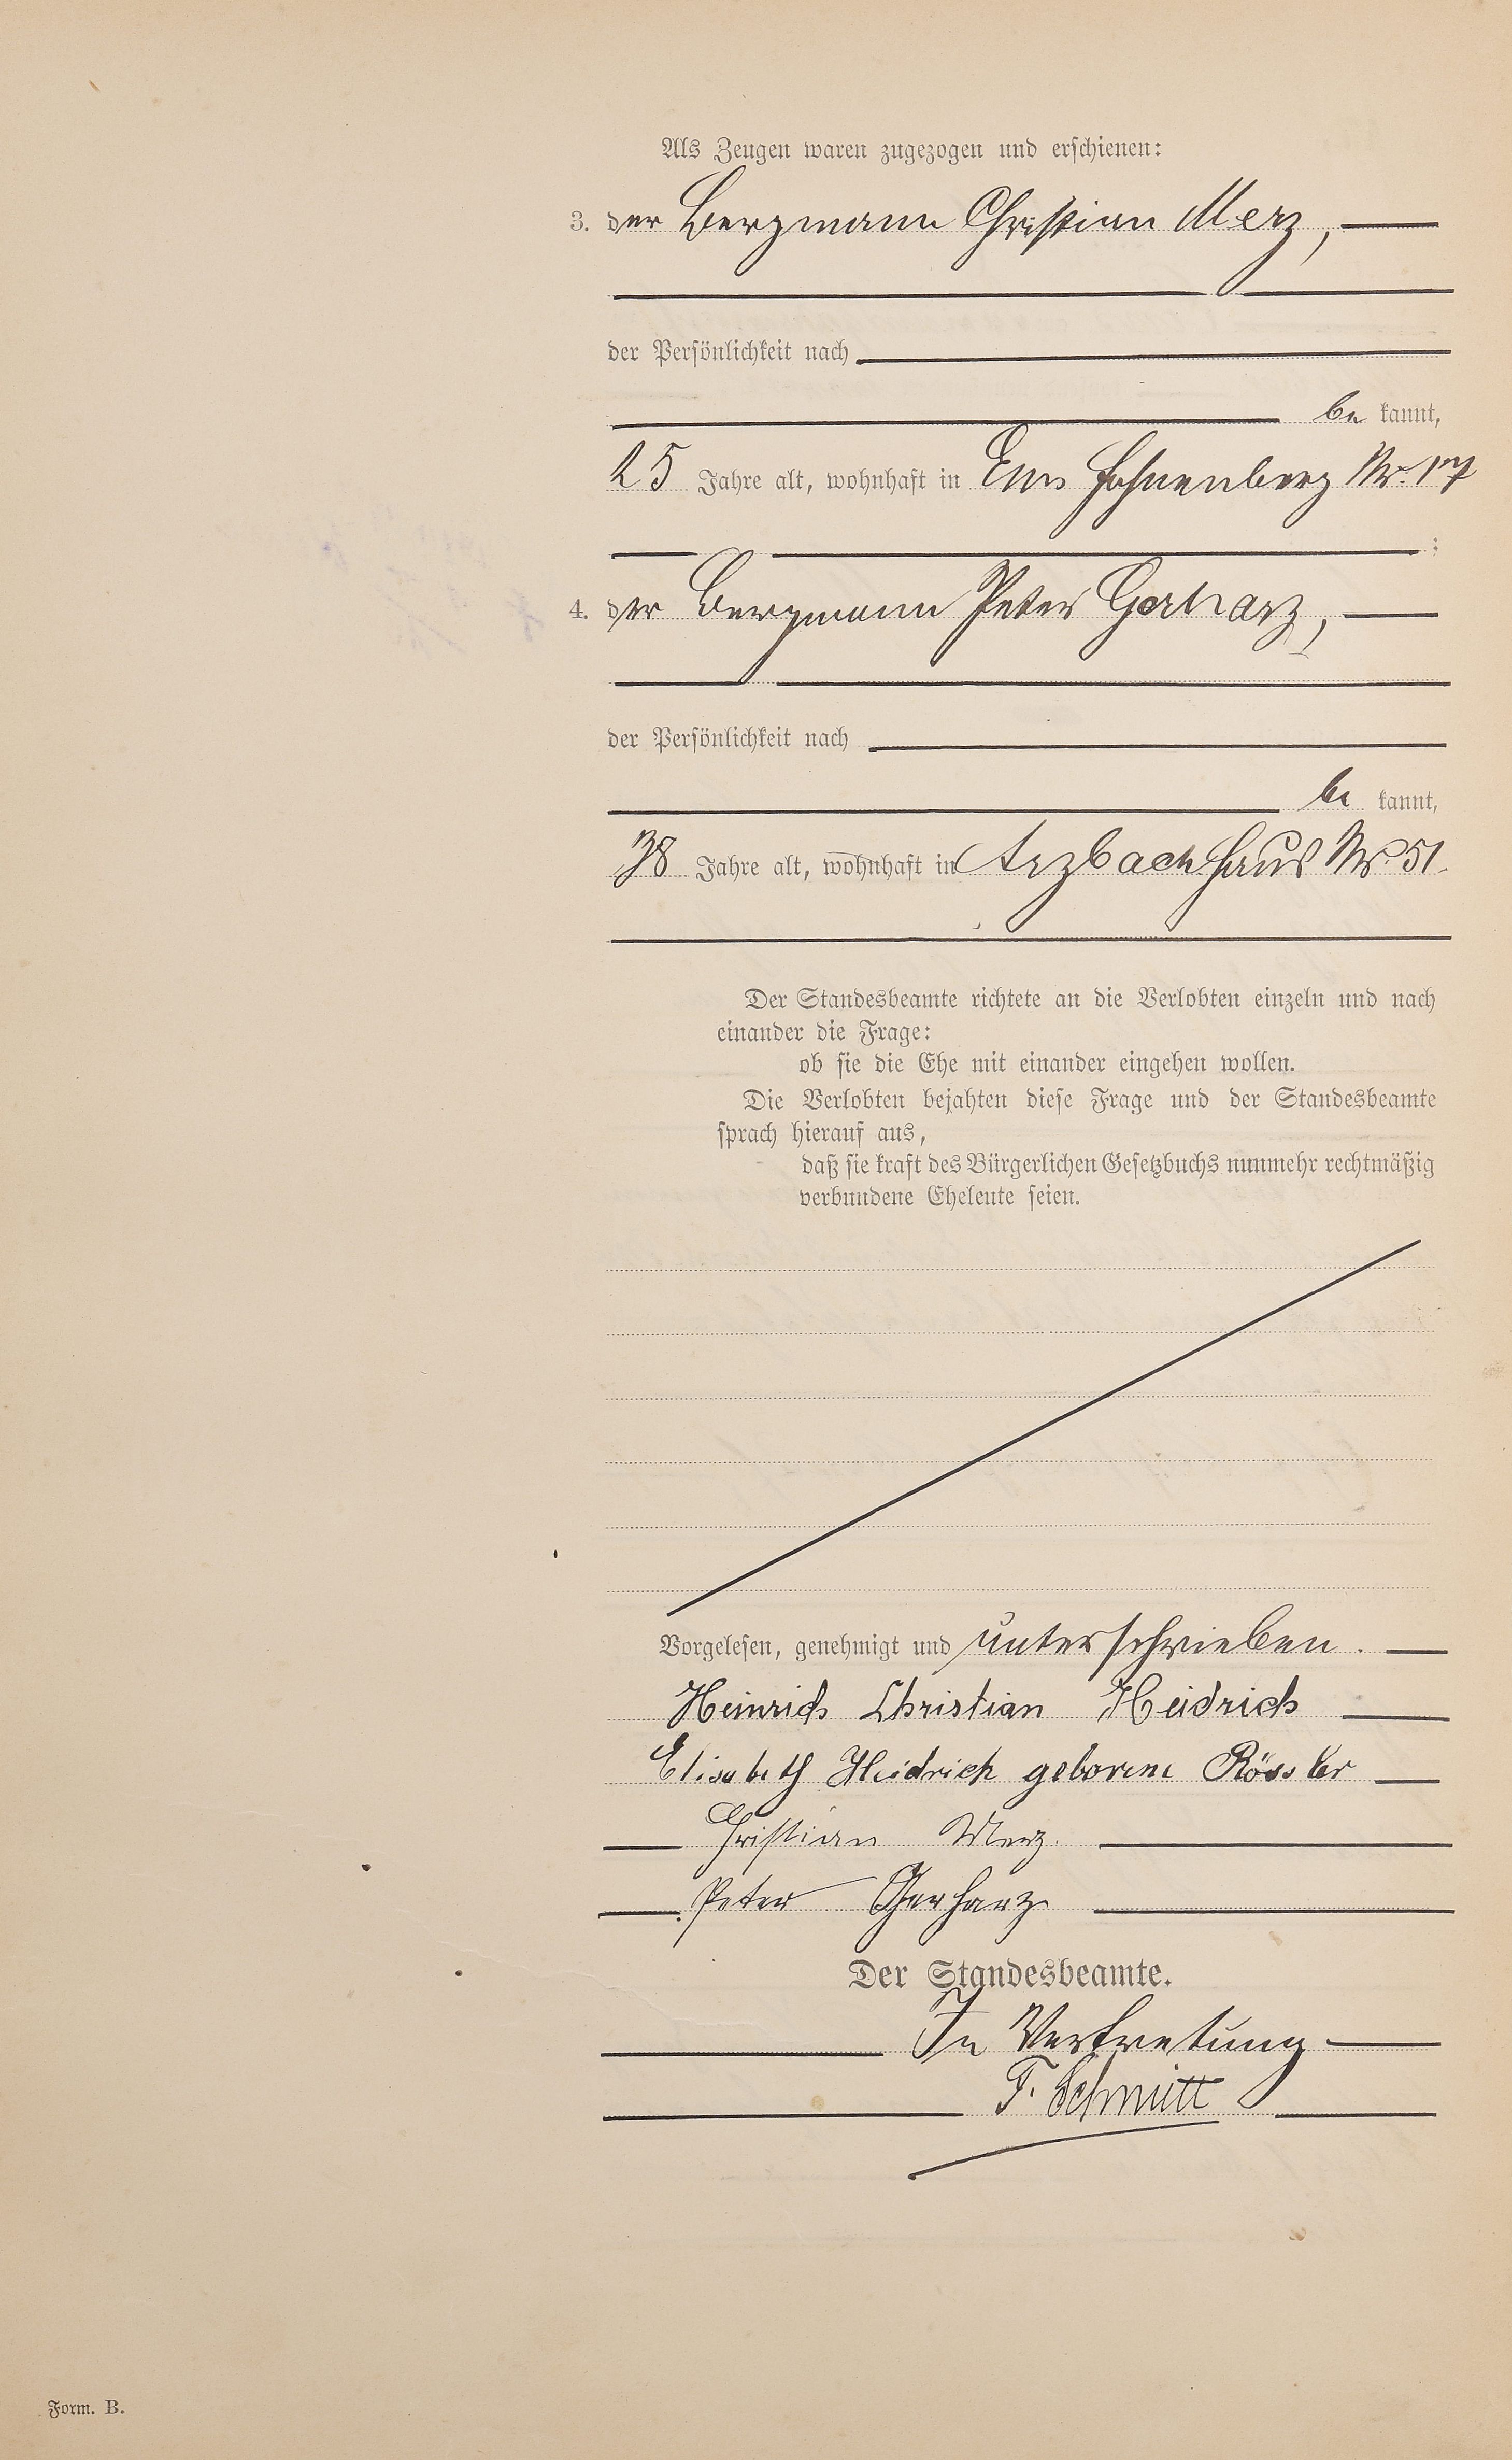 Als Zeugen waren zugezogen und erschienen:
3. der Bergmann Christian Merz,
der Persönlichkeit nach
be kannt,
25 Jahre alt, wohnhaft in Ems Hohnenberg Nr. 17
;
4. der Bergmann Peter Gerharz,
der Persönlichkeit nach
be kannt,
38 Jahre alt, wohnhaft in Arzbach Haus Nr. 51.
Der Standesbeamte richtete an die Verlobten einzeln und nach
einander die Frage:
ob sie die Ehe mit einander eingehen wollen.
Die Verlobten bejahten diese Frage und der Standesbeamte
sprach hierauf aus,
daß sie kraft des Bürgerlichen Gesetzbuchs nunmehr rechtmäßig
verbundene Eheleute seien.
Vorgelesen, genehmigt und unterschrieben.
Heinrich Christian Heidrich
Elisabeth Heidrich geborene Rössler
Christian Merz.
Peter Gerharz
Der Standesbeamte.
In Vertretung
F. Schmitt
Form. B.